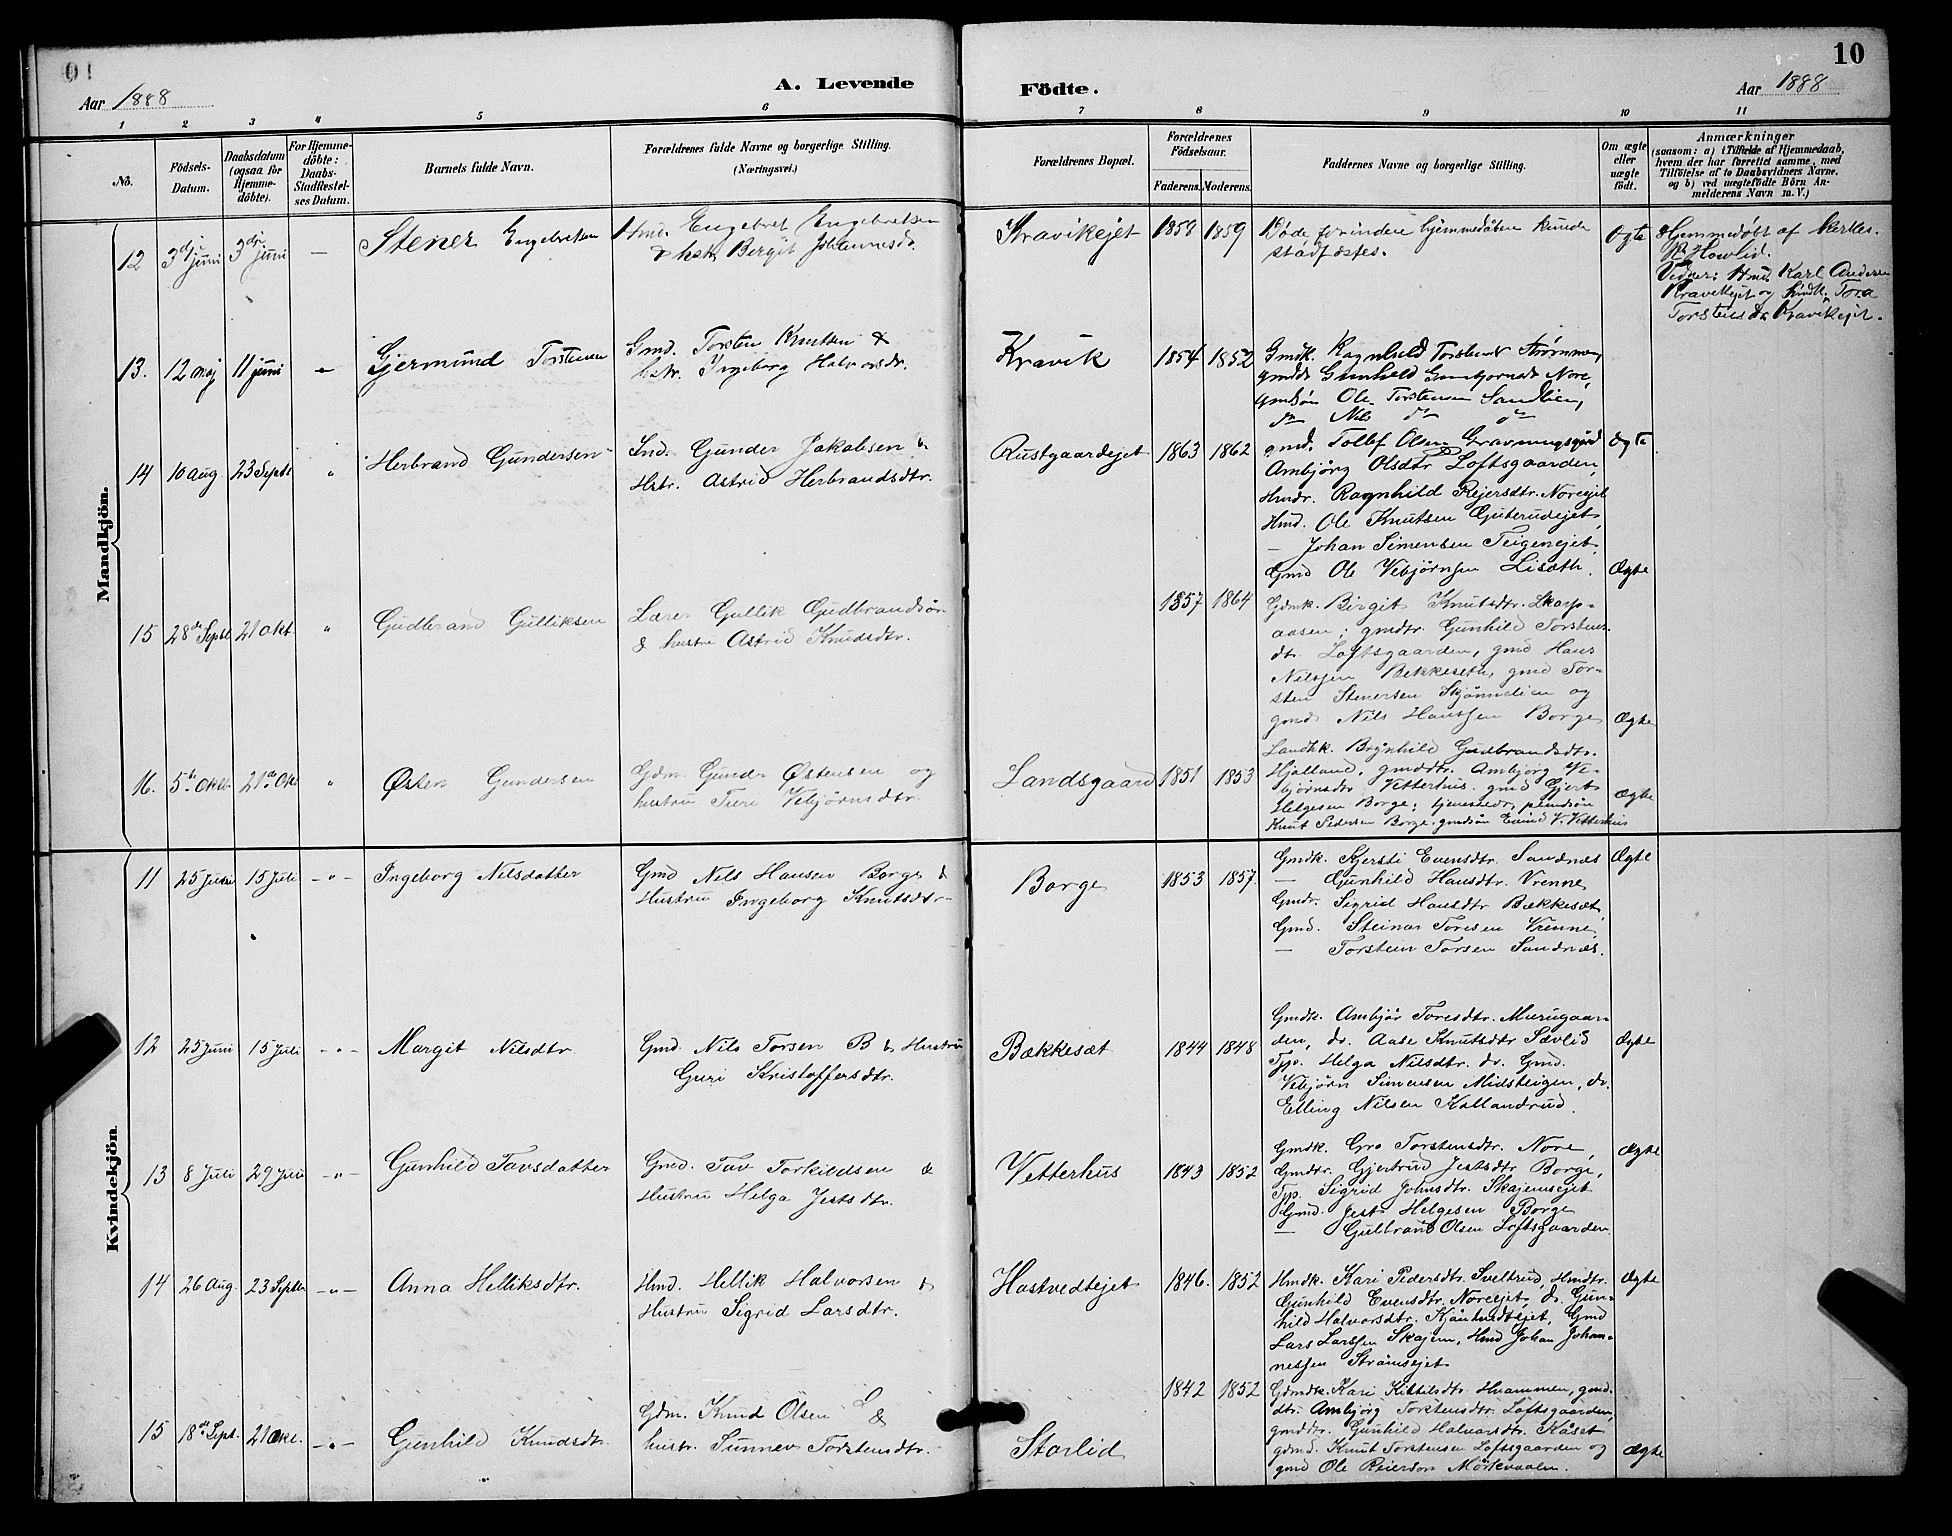 Aar 1888
A. Levende
Födte.
10
Aar 1888
1 2 3 4 5 6 7 8 9 10 11
No.
Födsels-Datum.
Daabsdatum (ogsaa for Hjemmedöbte).
For Hjemmedöbte: Daabs-Stadfæstelses Datum.
Barnets fulde Navn.
Forældrenes fulde Navne og borgerlige Stilling. (Næringsvei.)
Forældrenes Bopæl.
Forældrenes Födselsaar.
Faderens. Moderens.
Faddernes Navne og borgerlige Stilling.
Om ægte eller uægte födt.
Anmærkninger
(saasom: a) i Tilfælde af Hjemmedaab,
hvem der har forrettet samme, med
Tilföielse af to Daabsvidners Navne,
og b) ved uægtefödte Börn An-
melderens Navn m. V.)
Mandkjön.
12 3die juni 3die juni — Stener Engebretsen
Hmd. Engebret Engebretsen
& hstr. Birgit Johannesd.
Kravikejet 1858 1859
Døde forinden hjemmedåben kunde
stadfæstes.
ægte
Hjemmedøbt af
Vidner: Hmd. Karl Andersen
Kravikejet og Tora
Torstensdtr Kravikejet.
13. 12 maj 11 juni Gjermund Torstensen
Gmd. Torsten Knutsen &
hstr. Ingeborg Halvorsdr.
Kravik 1854 1852
Gmdk. Ragnhild Torstensd Strømmen,
gmdd. Gunhild Gunbjørnsdr Nore,
gmsøn Ole Torstensen Sandlien,
do Nils do do
14 10 Aug 23 Septb " Herbrand Gundersen
Ind. Gunder Jakobsen &
Hstr. Astrid Herbrandsdtr.
Rustgaardejet 1863 1862
gmd. Tollef Olsen Gravningsgård
Ambjörg Olsdtr Loftsgaarden,
Hmdr. Ragnhild Reiersdtr. Noreejet
Hmd. Ole Knutsen Guterudejet,
— Johan Simensen Teigenejet,
Gmd Ole Vebjørnsen Liseth.
Ægte
15 28de Septb 21 Okt. " Gudbrand Gulliksen
Lærer Gullik Gudbrandsøn
& hustru Astrid Knudsdtr.
1857 1864
Gdmk. Birgit Knutsdtr. Skarp-
aasen, gmdtr. Gunhild Torstens-
dtr. Loftsgaarden, gmd Hans
Nilssen Bekkeseth, gmd Tor-
sten Stenersen Skjønnelien og
gmds Nils Hanssen Borge
Ægte
16. 5te Oktb. 21de Okt " Østen Gundersen
Gdm. Gunder Østensen og
hustru Turi Vebjørnsdtr.
Landsgaard 1851 1853
Landhk. Brynhild Gudbrandsdtr.
Hjalland, gmddtr. Ambjörg Ve-
bjørnsdtr. Vetterhus, gmd Gjert
Helgesen Borge,
Knut Pedersen Borge, gmdsøn Eivind V. Vetterhus
Ægte
Kvindekjön
11 25 Juni 15 Juli — " — Ingeborg Nilsdatter
Gmd Nils Hansen Borge &
Hustru Ingeborg Knutsdtr.
Borge 1853 1857.
Gmdk. Kjersti Evensdtr. Sandnæs
— Gunhild Hansdtr. Vrenne
Gmdr. Sigrid Hansdtr Bækkesæt,
Gmd. Steinar Toresen Vrenne,
— Torstein Torsen Sandnæs.
Ægte
12 25 Juni 15 Juli — " — Margit Nilsdtr.
Gmd. Nils Torsen B & Hustru
Guri Kristoffersdtr.
Bækkesæt 1844 1848
Gmdk. Ambjør Toresdtr. Murugaar-
den, do. Aase Knutsdtr Sævlid
Tjp. Helga Nilsdtr. do. Gmd.
Vebjörn Simensen Midsteigen, do.
Elling Nilsen Kollandrud.
Ægte
13 8 Juli 29 Juli — " — Gunhild Tavsdatter
Gmd. Tav Torkildsen &
Hustru Helga Jestsdtr.
Vetterhus 1843 1852
Gmdk. Gro Torstensdtr. Nore,
Gmdtr. Gjertrud Jestsdtr Borge,
Tjp. Sigrid Johnsdtr. Skajemsejet.
Gmd. Jest Helgesen Borge
— Gulbrand Olsen Loftsgaarden
Ægte
14 26 Aug. 23 Septbr — " — Anna Helliksdtr.
Hmd. Hellik Halvorsen &
Hustru Sigrid Larsdtr.
Hostvedtejet 1846. 1852
Hmdk. Kari Pedersdtr. Sveltrud, Hmdtr.
Gunhild Evensdtr. Noreejet, do. Gun-
hild Halvorsdtr. Kjöntvedtejet, Gmd
Lars Larssen Skajem, Hmd Johan Johan-
nessen Strömsejet
Ægte
15 18de Sept. 21 Okt. — " — Gunhild Knudsdtr.
Gdm. Knud Olsen S &
hustr. Sunnev Torstensdtr.
Storlid 1842 1852
Gdmdk. Kari Kittilsdtr. Hvammen, gmd-
dtr. Ambjörg Torstensdtr. Loftsgaarden,
gmddtr. Gunhild Halvorsdtr. Kåset
gdmd. Knut Torstensen Loftsgaarden og
gmd Ole Reierson Mörkvaalen.
Ægte